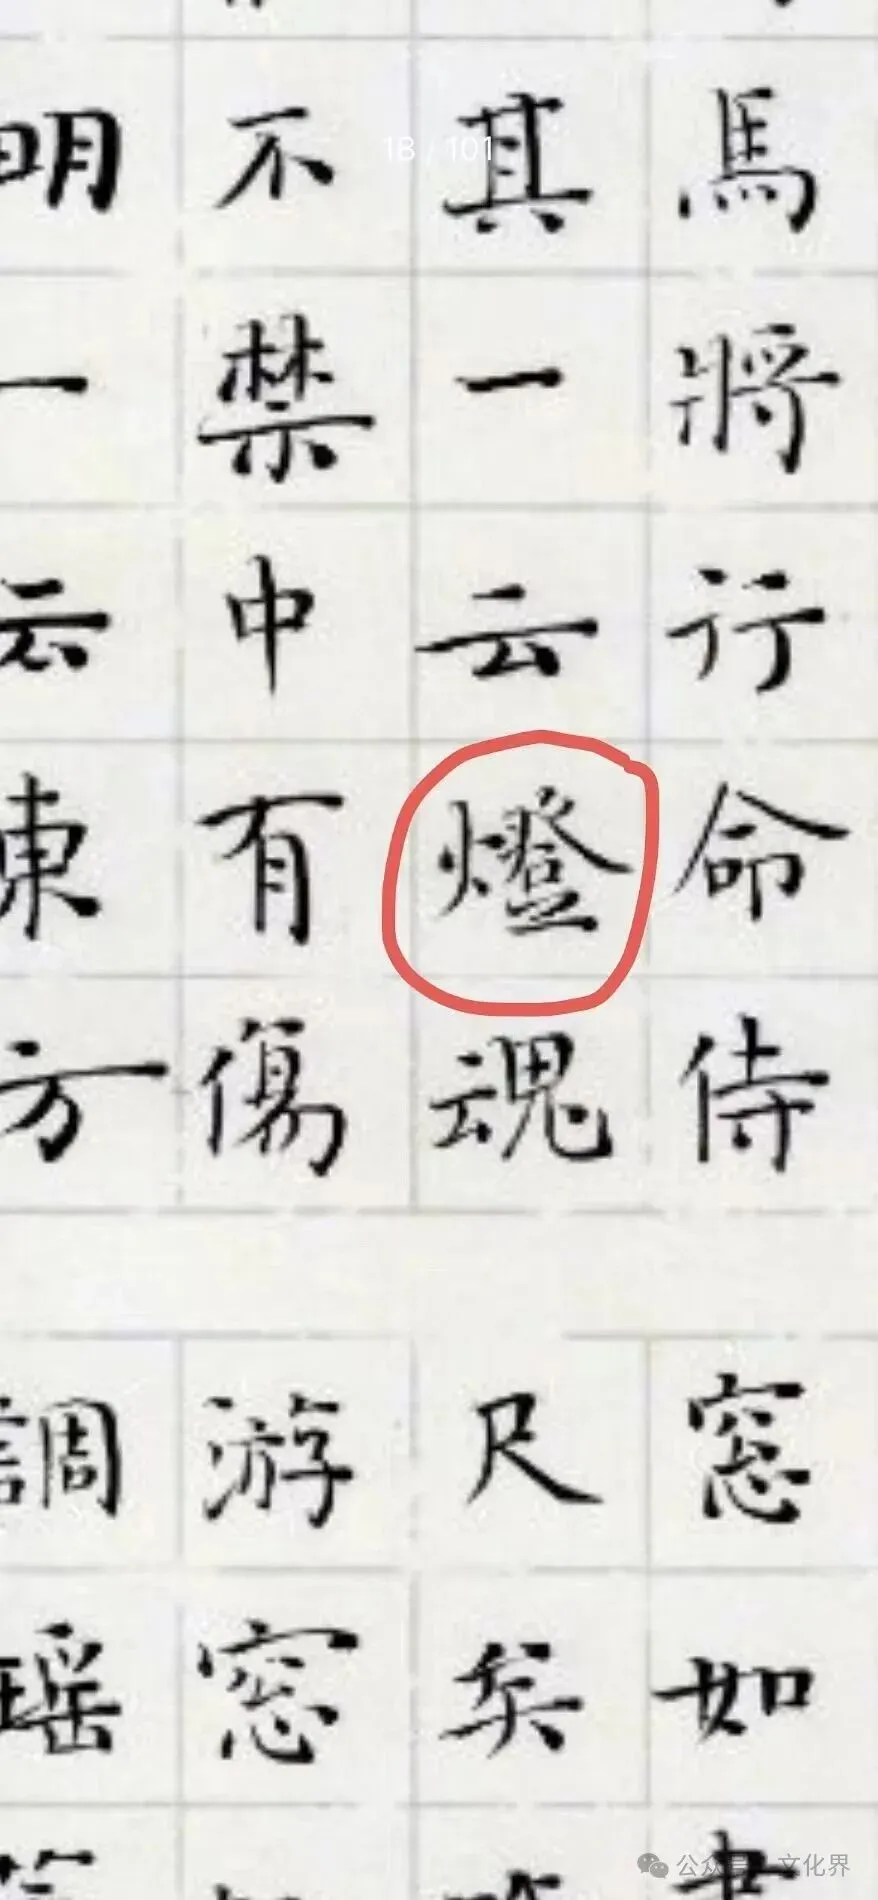 馬將行命侍
其一云燈魂
不禁中有傷
明一云東方
窓如
尺矣
游窓
調瑶
18 / 101
公众号 · 文化界